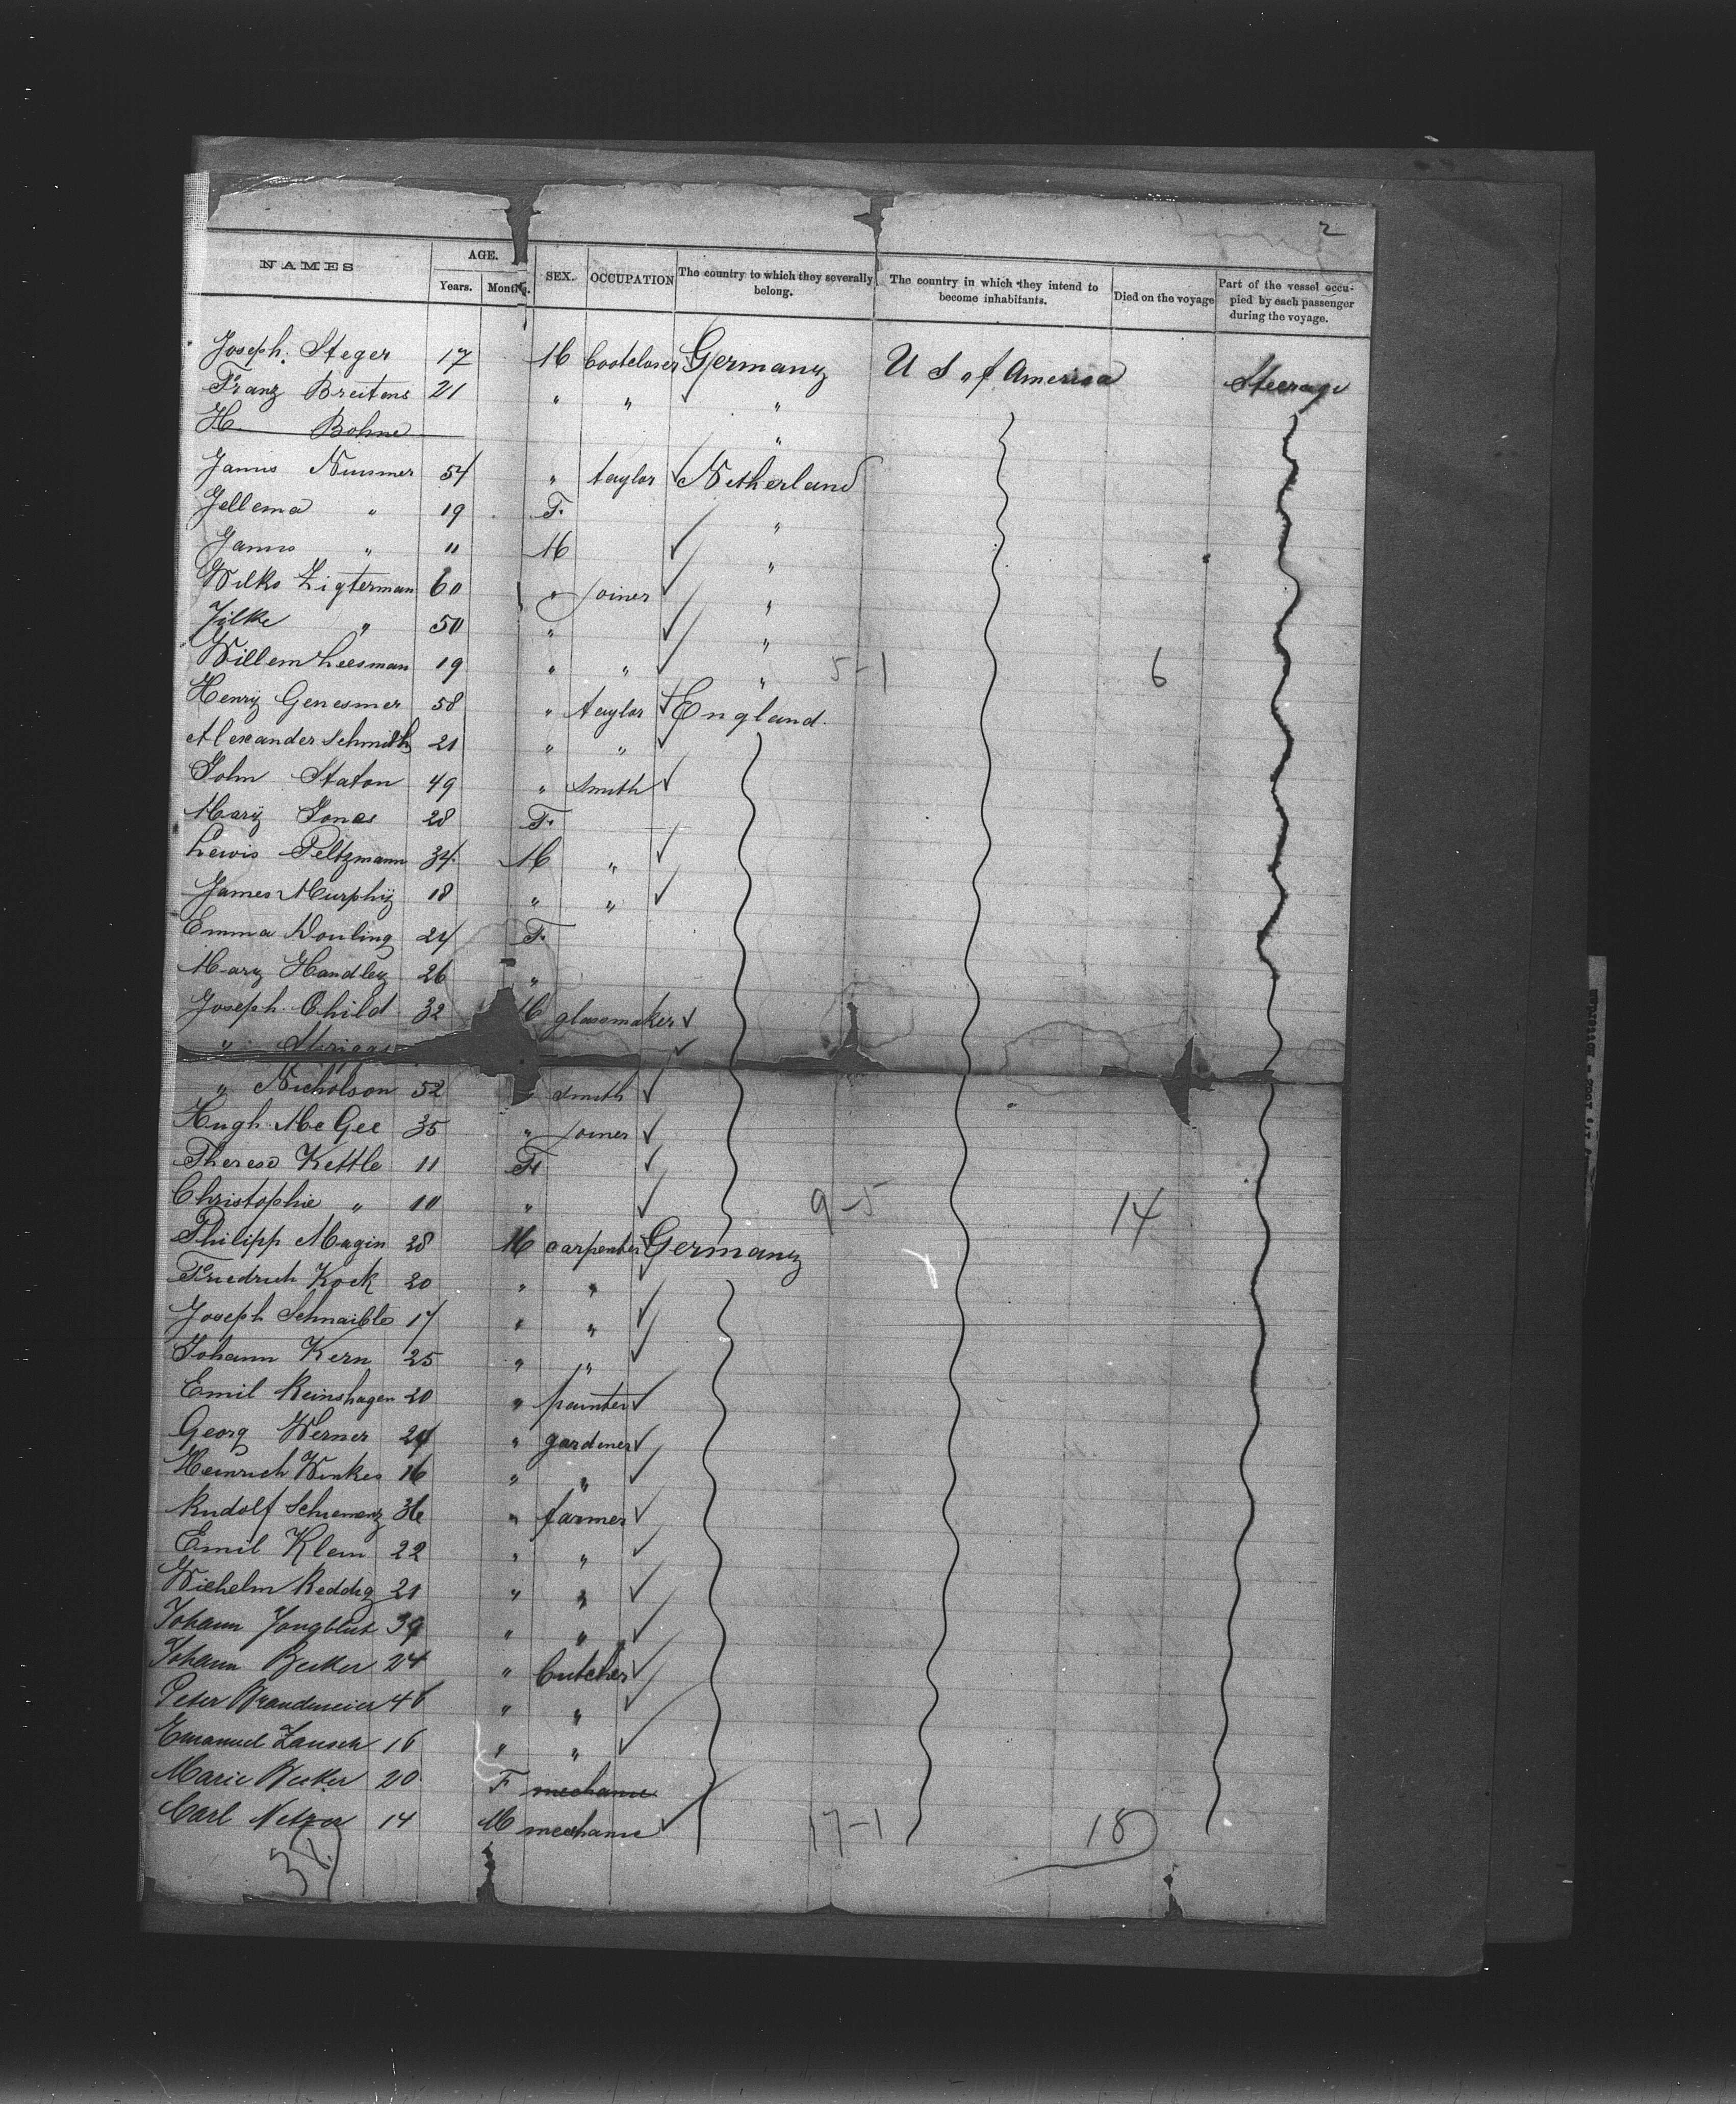 2
NAMES AGE. Years. Months. SEX. OCCUPATION The country to which they severally belong. The country in which they intend to become inhabitants. Died on the voyage Part of the vessel occupied by each passenger during the voyage.
Joseph. Steger 17 M Germany U S of America Steerage
Franz Breitens 21 " " "
H. Bohne "
Janus Nuismer 54 " taylor Netherland
Jellema " 19 F. "
Janus " 11 M "
Wilko Zigterman 60 " joiner "
Jilke " 50 " "
Willem Leesman 19 " " " 5-1 6
Henry Genesmer 58 " taylor England
Alexander Schmith 21 " "
John Staton 49 " smith
Mary Jones 28 F.
Lewis Peltzmann 34 M "
James Murphy 18 " "
Emma Douling 24 F.
Mary Handley 26 "
Joseph Child 32 M glasemaker
"
" Nicholson 52 " smith
Hugh Mc Gee 35 " joiner
Therese Kettle 11 F
Christophie " 10 " 9-5 14
Philipp Magin 28 M carpenter Germany
Friedrich Kock 20 " "
Joseph Schnaible 17 " "
Johann Kern 25 " "
Emil Reinshagen 20 " painter
Georg Werner 24 " gardener
Heinrich Winkes 16 " "
Rudolf Schiemenz 36 " farmer
Emil Klein 22 " "
Wilhelm Reddig 21 " "
Johann Jongblut 39 " "
Johann Becker 24 " butcher
Peter Brandmeier 46 " "
Emanuel Zausch 16 " "
Marie Becker 20 F mechanic
Carl Netzer 14 M mechanic 17-1 18